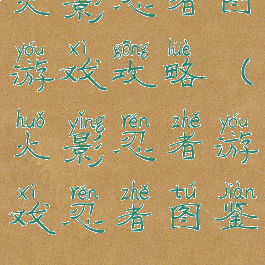 火影忍者图
yóu xì gōng lüè
游戏攻略（
huǒ yǐng rěn zhě yóu
火影忍者游
xì rěn zhě tú jiàn
戏忍者图鉴